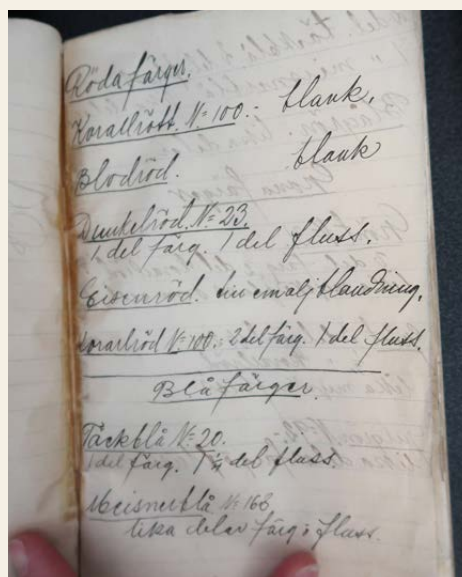 Röda färger.
Korallrött. No 100.- blank.
Blodröd. blank
Dunkelröd. No 23.
1 del färg. 1 del fluss.
Eisenröd. emaljblandning.
No 100.- 2 del färg. 1 del fluss.
Blå färger.
Täckblå No 20.
1 del färg. del fluss.
Meisnerblå No 168
lika delar färg o fluss.